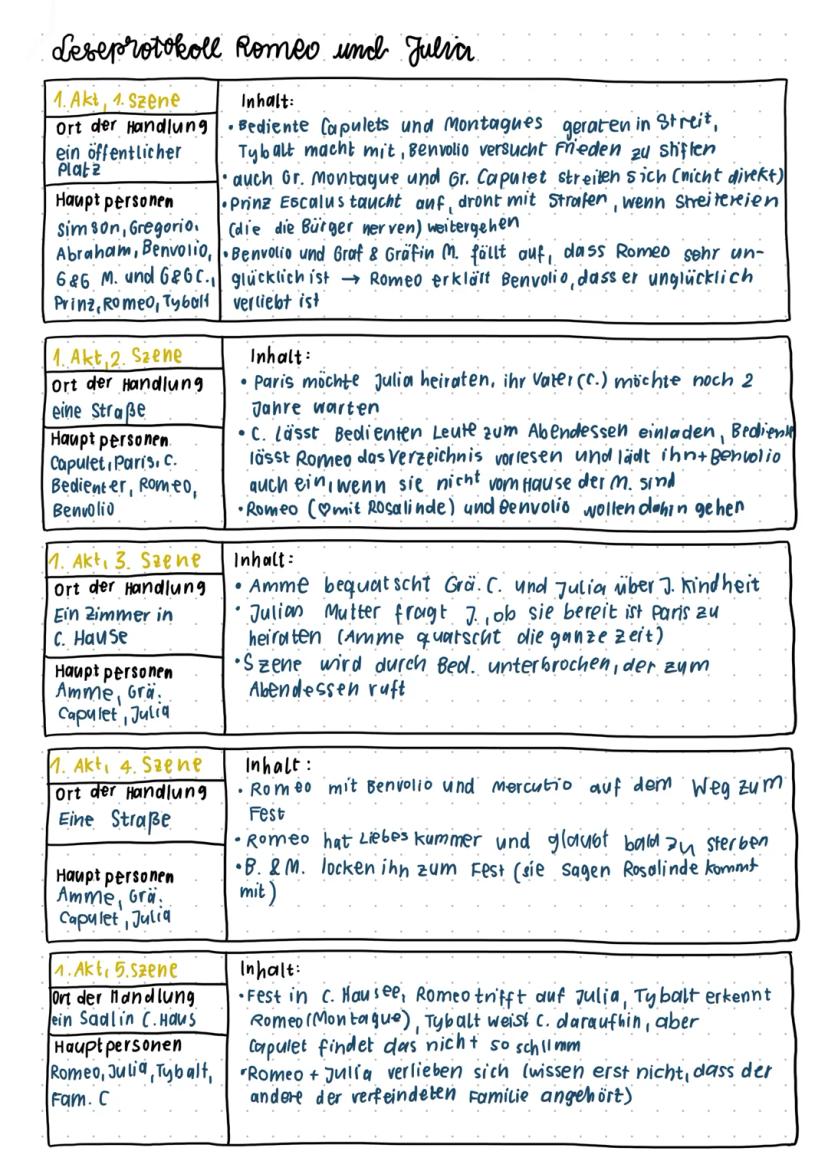 Leseprotokoll Romeo und Julia
1. Akt, 1. Szene
Ort der Handlung
ein öffentlicher
Platz
Hauptpersonen
Simson, Gregorio,
Abraham, Benvolio,
G&G M. und G&G C.,
Prinz, Romeo, Tybalt
Inhalt:
• Bediente Capulets und Montagues geraten in Streit,
Tybalt macht mit, Benvolio versucht Frieden zu stiften
• auch Gr. Montague und Gr. Capulet streiten sich (nicht direkt)
• Prinz Escalus taucht auf, droht mit Strafen, wenn Streitereien
(die die Bürger nerven) weitergehen
• Benvolio und Graf & Gräfin M. fällt auf, dass Romeo sehr un-
glücklich ist → Romeo erklärt Benvolio, dass er unglücklich
verliebt ist
1. Akt, 2. Szene
Ort der Handlung
eine Straße
Hauptpersonen
Capulet, Paris, C.
Bedienter, Romeo,
Benvolio
Inhalt:
• Paris möchte Julia heiraten, ihr Vater (C.) möchte noch 2
Jahre warten
• C. lässt Bedienten Leute zum Abendessen einladen, Bediente
lässt Romeo das Verzeichnis vorlesen und lädt ihn + Benvolio
auch ein, wenn sie nicht vom Hause der M. sind
• Romeo (♡ mit Rosalinde) und Benvolio wollen dahin gehen
1. Akt, 3. Szene
Ort der Handlung
Ein Zimmer in
C. Hause
Hauptpersonen
Amme, Grä.
Capulet, Julia
Inhalt:
• Amme bequatscht Grä. C. und Julia über J. Kindheit
• Julian Mutter fragt J., ob sie bereit ist Paris zu
heiraten (Amme quatscht die ganze Zeit)
• Szene wird durch Bed. unterbrochen, der zum
Abendessen ruft
1. Akt, 4. Szene
Ort der Handlung
Eine Straße
Hauptpersonen
Amme, Grä.
Capulet, Julia
Inhalt:
• Romeo mit Benvolio und Mercutio auf dem Weg zum
Fest
• Romeo hat Liebeskummer und glaubt bald zu sterben
• B. & M. locken ihn zum Fest (sie sagen Rosalinde kommt
mit)
1. Akt, 5. Szene
Ort der Handlung
ein Saal in C. Haus
Hauptpersonen
Romeo, Julia, Tybalt,
Fam. C
Inhalt:
• Fest in C. Hausee, Romeo trifft auf Julia, Tybalt erkennt
Romeo (Montague), Tybalt weist C. daraufhin, aber
Capulet findet das nicht so schlimm
• Romeo + Julia verlieben sich (wissen erst nicht, dass der
andere der verfeindeten Familie angehört)